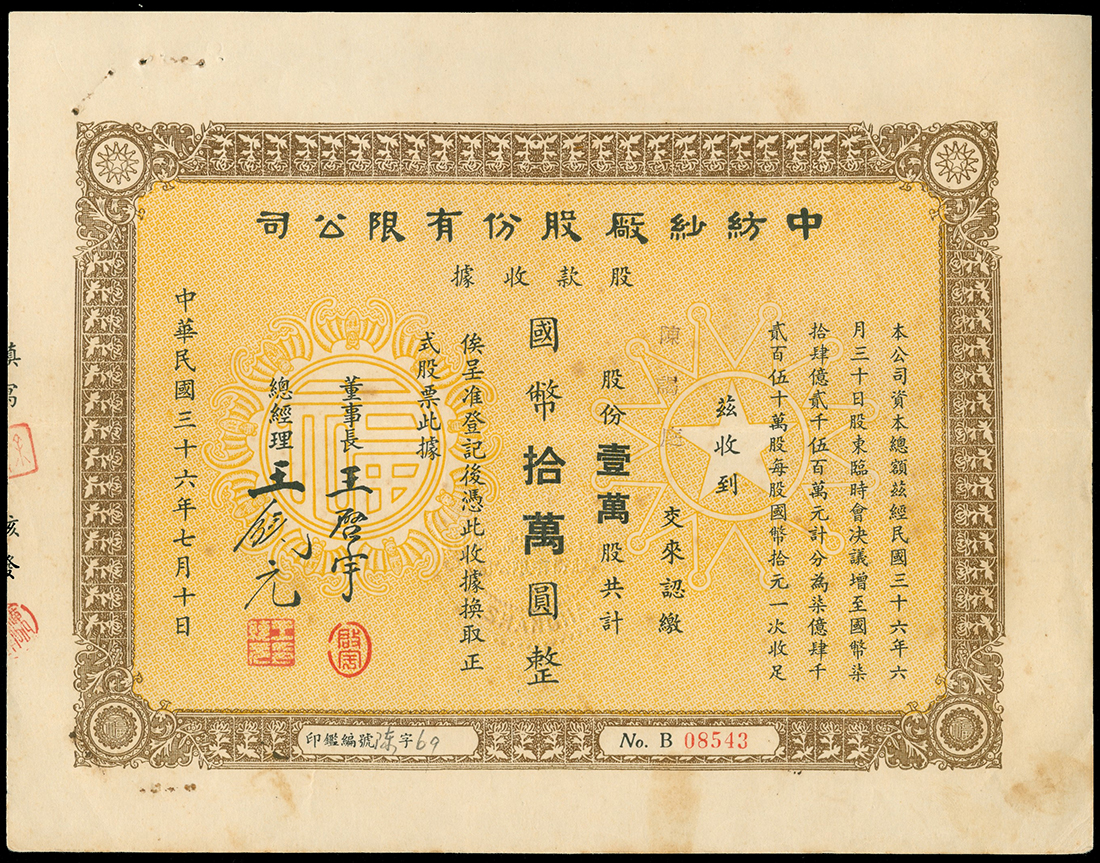 中紡紗厰股份有限公司
股款收據
本公司資本總額茲經民國三十六年六
月三十日股東臨時會決議增至國幣柒
拾肆億貳千伍百萬元計分為柒億肆千
貳百伍十萬股每股國幣拾元一次收足
茲收到
陳 交來認繳
股份壹萬股共計
國幣拾萬圓整
俟呈准登記後憑此收據換取正
式股票此據
董事長 王啓宇
總經理 王 元
中華民國三十六年七月十日
印鑑編號 陳字69
No. B 08543